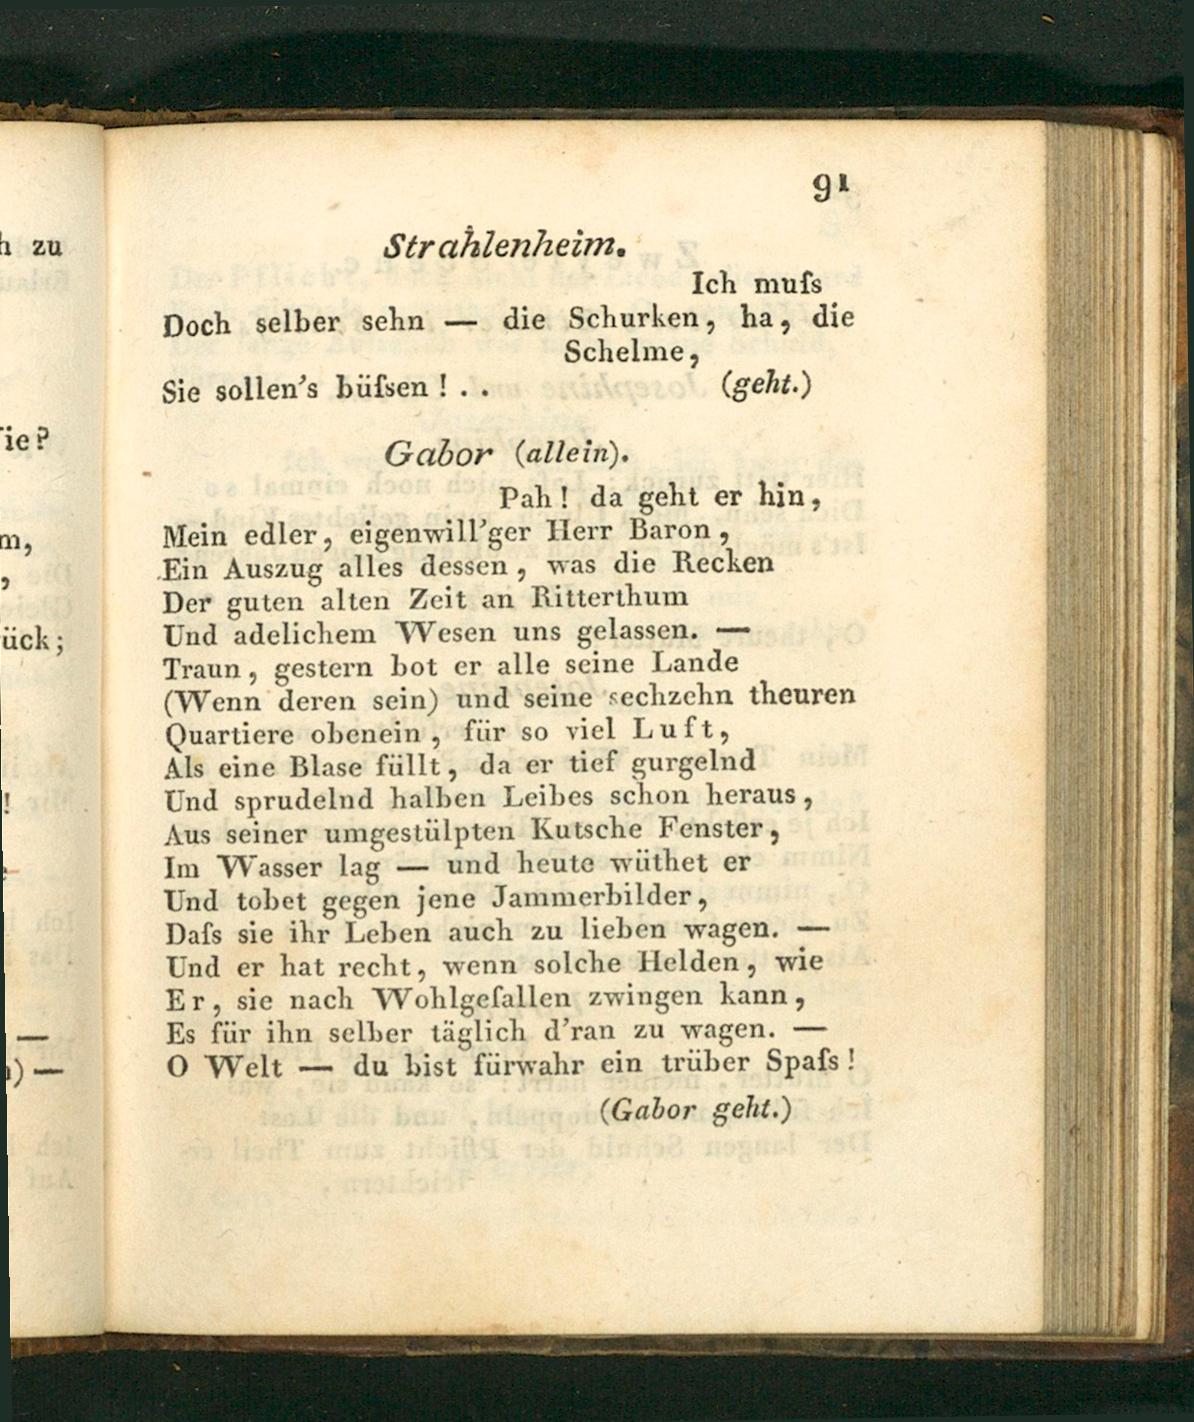 91
Strahlenheim.
Ich muſs
Doch selber sehn — die Schurken, ha, die
Schelme,
Sie sollen's büſsen! . . (geht.)
Gabor (allein).
Pah! da geht er hin,
Mein edler, eigenwill'ger Herr Baron,
Ein Auszug alles dessen, was die Recken
Der guten alten Zeit an Ritterthum
Und adelichem Wesen uns gelassen. —
Traun, gestern bot er alle seine Lande
(Wenn deren sein) und seine sechzehn theuren
Quartiere obenein, für so viel Luft,
Als eine Blase füllt, da er tief gurgelnd
Und sprudelnd halben Leibes schon heraus,
Aus seiner umgestülpten Kutsche Fenster,
Im Wasser lag — und heute wüthet er
Und tobet gegen jene Jammerbilder,
Daſs sie ihr Leben auch zu lieben wagen. —
Und er hat recht, wenn solche Helden, wie
Er, sie nach Wohlgefallen zwingen kann,
Es für ihn selber täglich d'ran zu wagen. —
O Welt — du bist fürwahr ein trüber Spaſs!
(Gabor geht.)